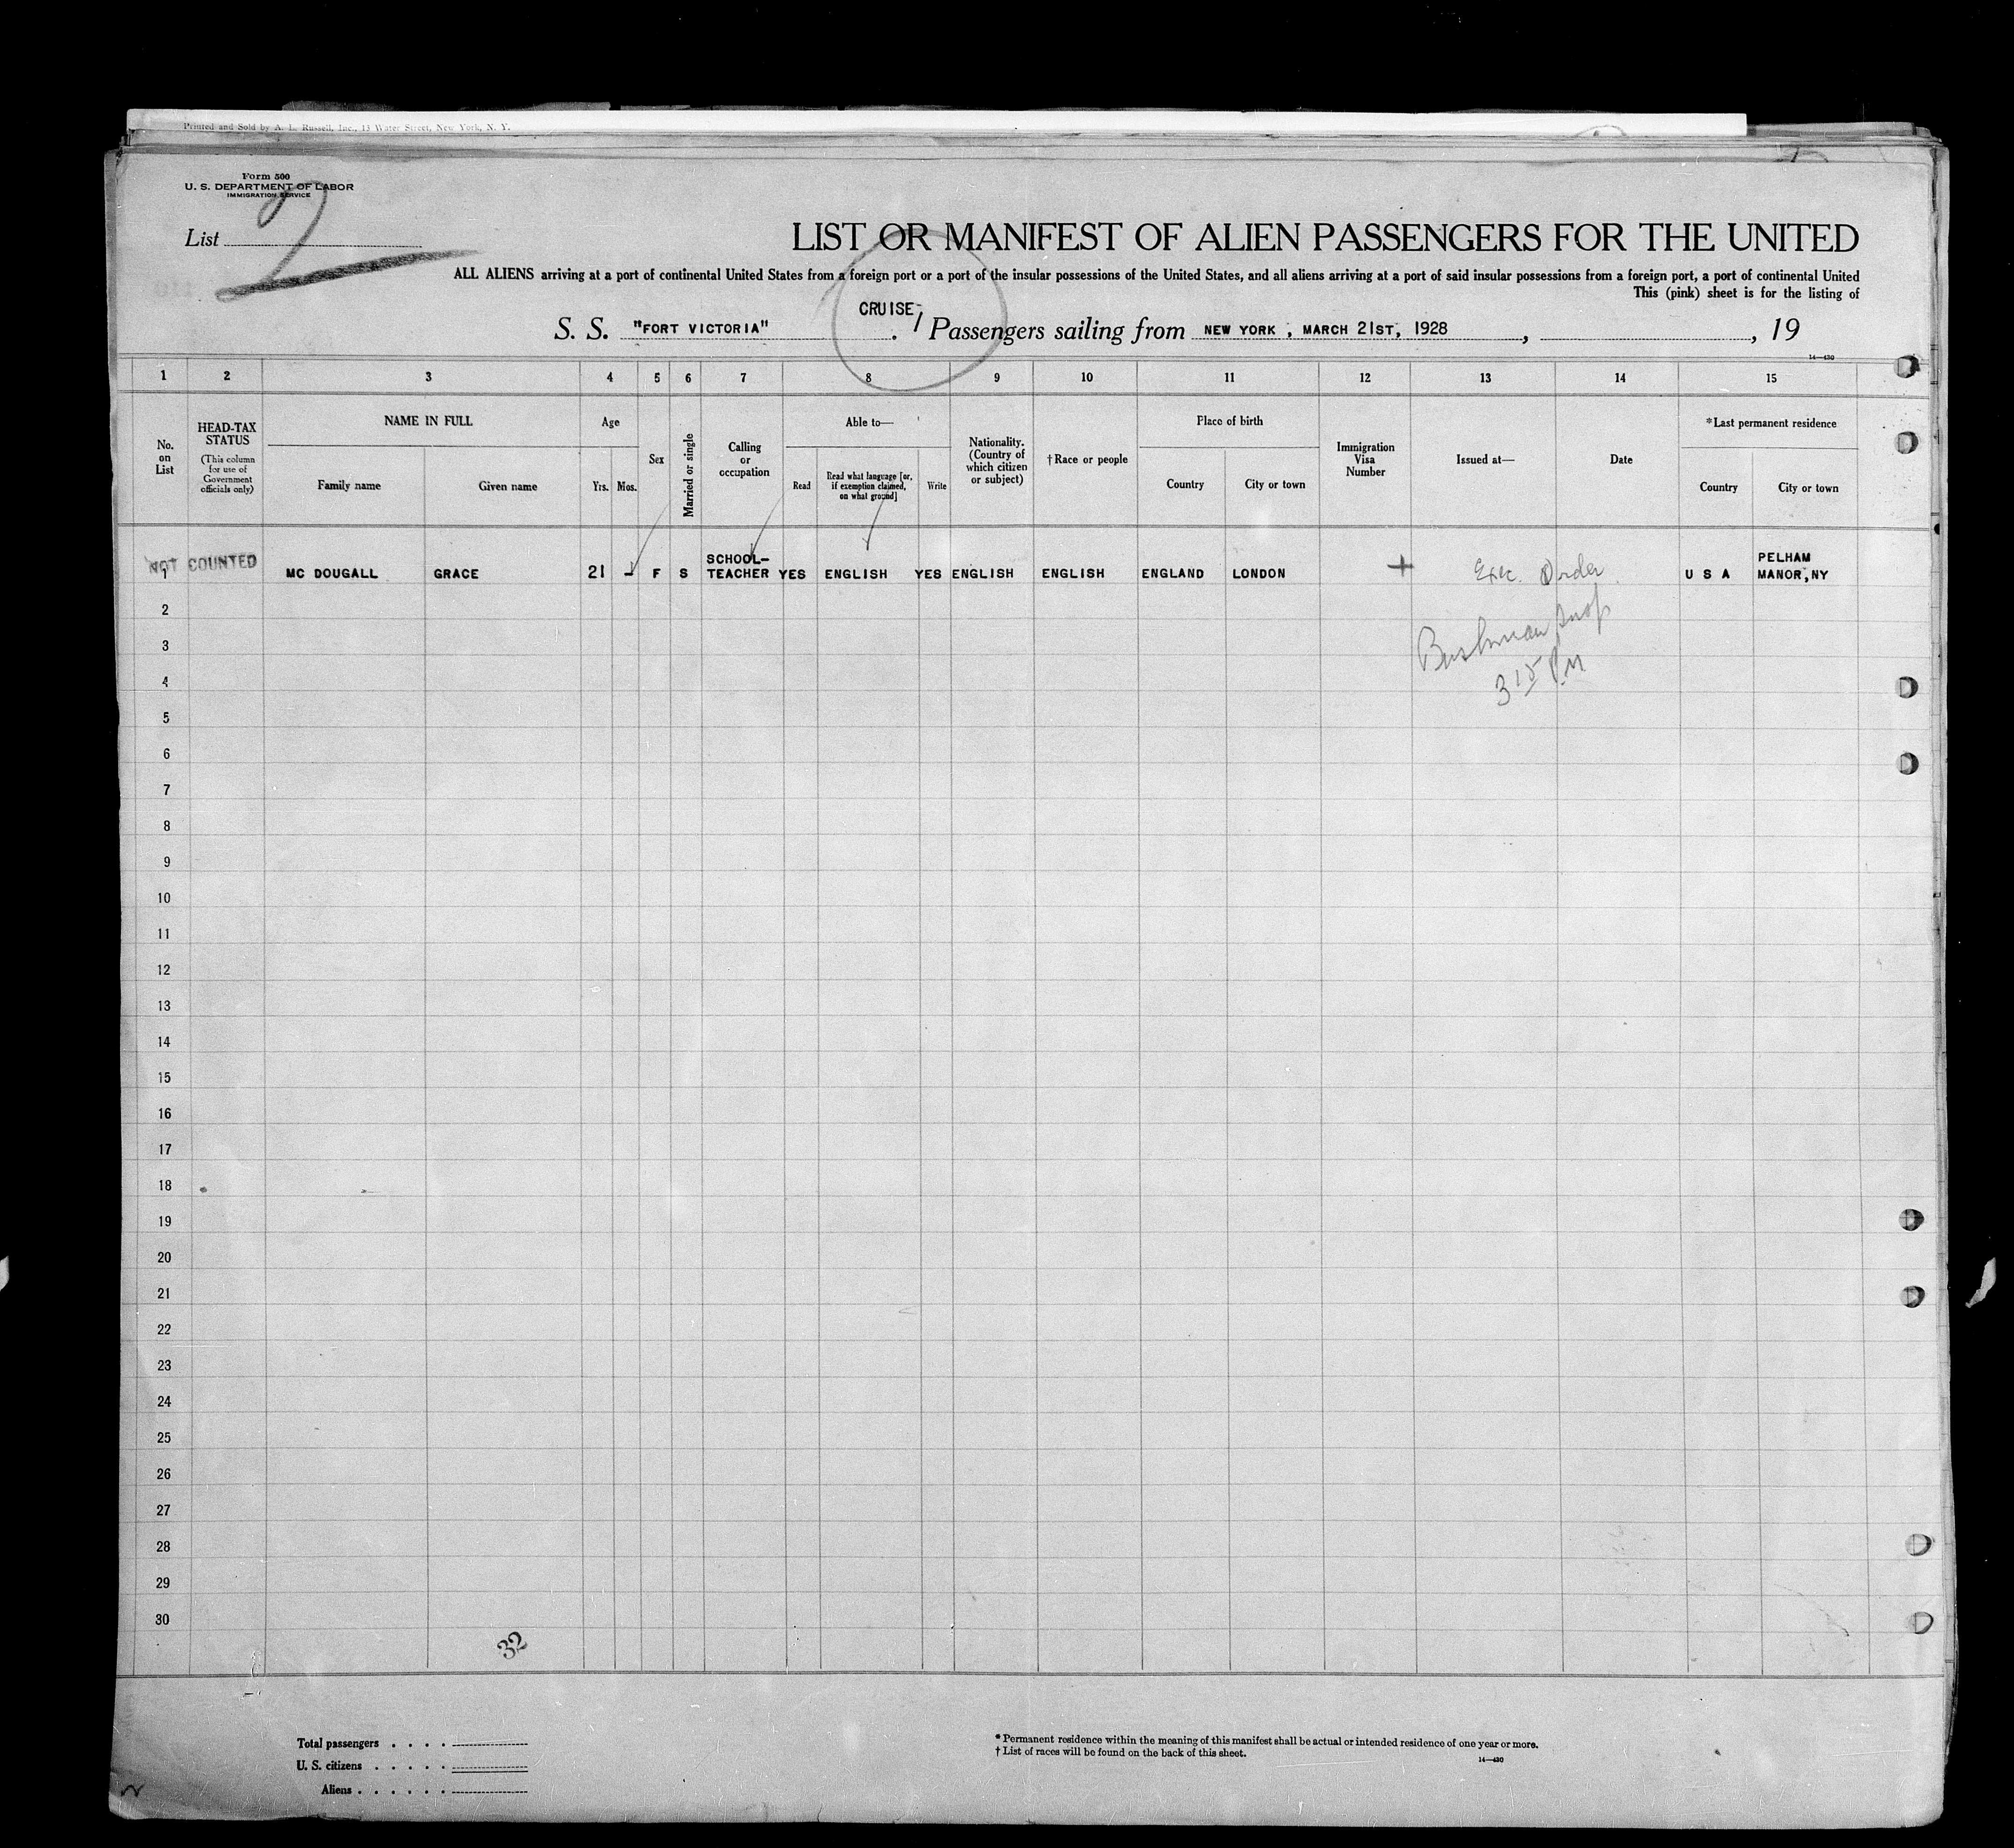 Printed and Sold by A. L. Russell, Inc., 13 Water Street, New York, N. Y.
Form 500
U. S. DEPARTMENT OF LABOR
IMMIGRATION SERVICE
List 2
LIST OR MANIFEST OF ALIEN PASSENGERS FOR THE UNITED
ALL ALIENS arriving at a port of continental United States from a foreign port or a port of the insular possessions of the United States, and all aliens arriving at a port of said insular possessions from a foreign port, a port of continental United
This (pink) sheet is for the listing of
CRUISE
S. S. "FORT VICTORIA" . Passengers sailing from NEW YORK , MARCH 21ST, 1928 , , 19
14—430
1 2 3 4 5 6 7 8 9 10 11 12 13 14 15
No. on List
HEAD-TAX STATUS
(This column for use of Government officials only)
NAME IN FULL
Family name Given name
Age
Yrs. Mos.
Sex
Married or single
Calling or occupation
Able to—
Read
Read what language [or, if exemption claimed, on what ground]
Write
Nationality. (Country of which citizen or subject)
†Race or people
Place of birth
Country City or town
Immigration Visa Number
Issued at—
Date
*Last permanent residence
Country City or town
NOT COUNTED
1 MC DOUGALL GRACE 21 - F S SCHOOL-TEACHER YES ENGLISH YES ENGLISH ENGLISH ENGLAND LONDON + Exec. Order U S A PELHAM MANOR,NY
2
3
3 15 PM
4
5
6
7
8
9
10
11
12
13
14
15
16
17
18
19
20
21
22
23
24
25
26
27
28
29
30
32
Total passengers . . . .
U. S. citizens . . . . .
Aliens . . . . . .
* Permanent residence within the meaning of this manifest shall be actual or intended residence of one year or more.
† List of races will be found on the back of this sheet.
14—430